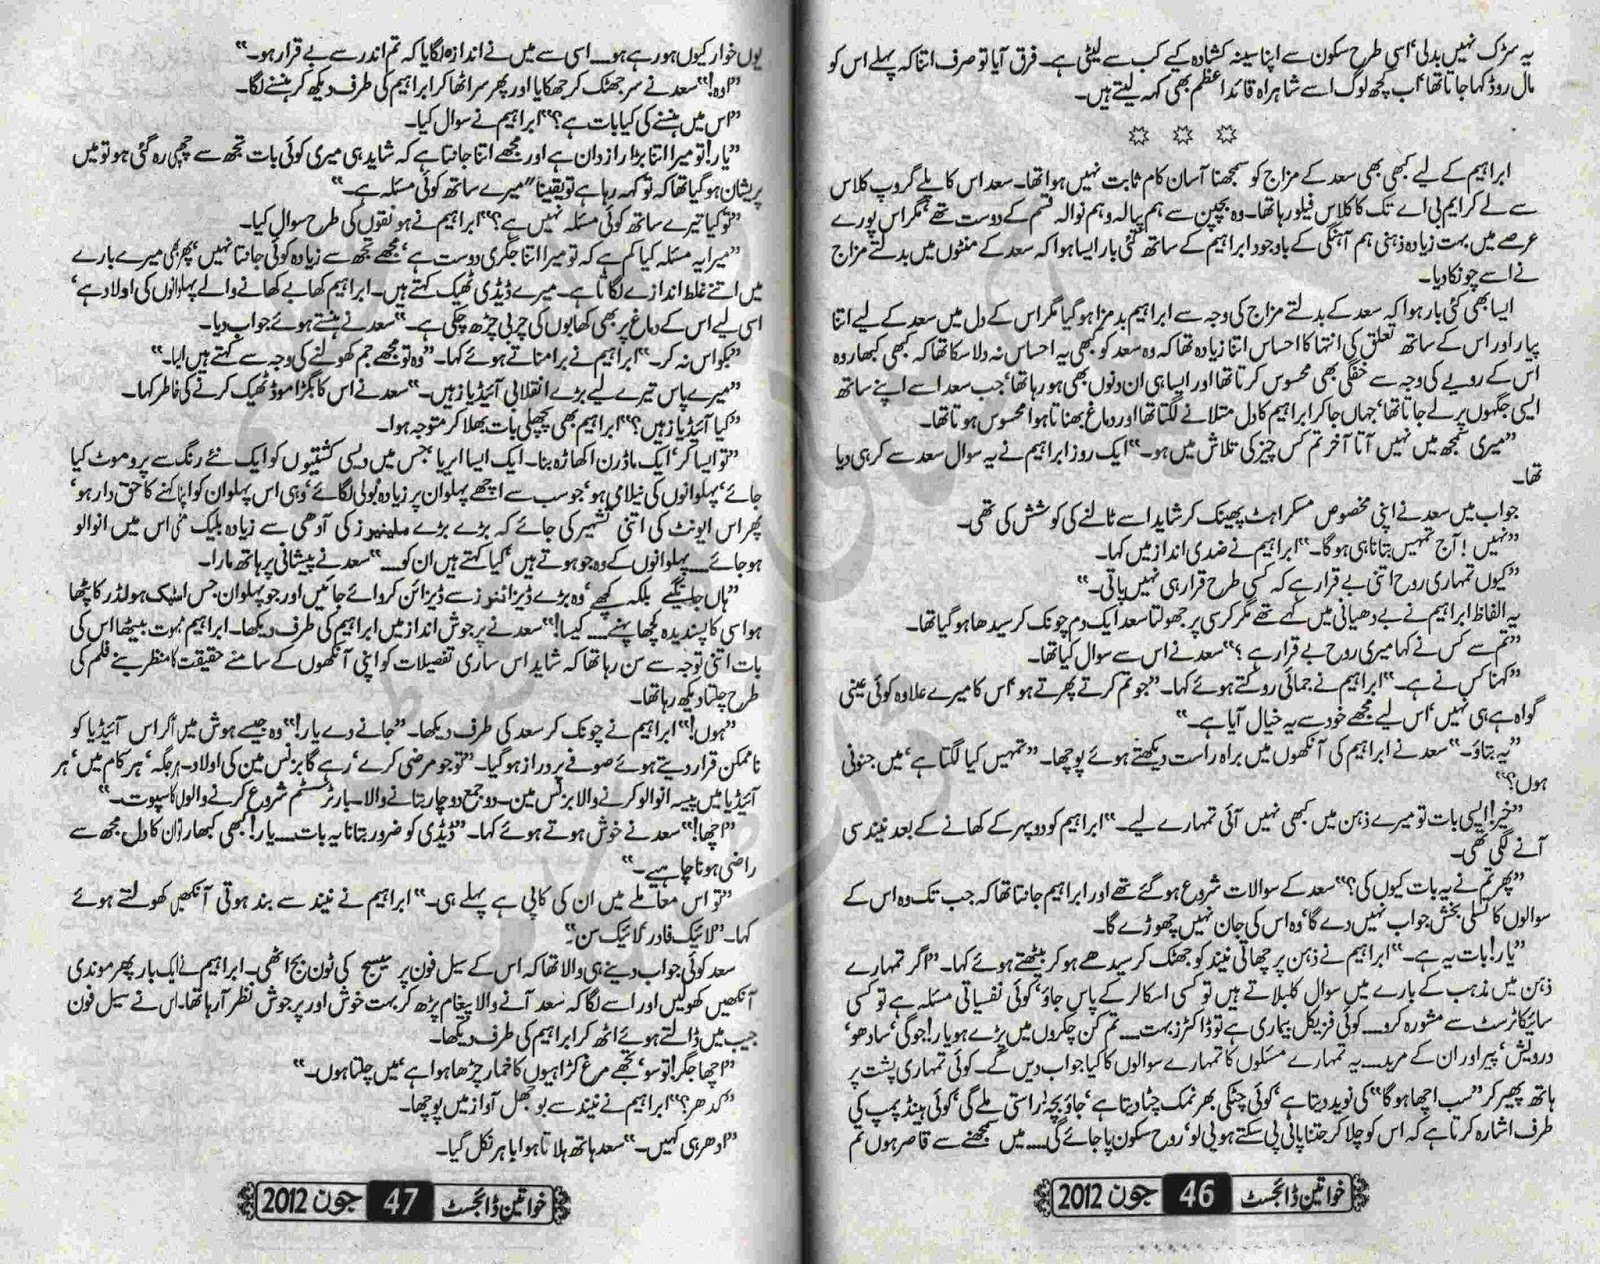 یہ سڑک نہیں بدلی‘ اسی طرح سکون سے اپنا سینہ کشادہ کیے کب سے لیٹی ہے۔ فرق آیا تو صرف اتنا کہ پہلے اس کو
مال روڈ کہا جاتا تھا‘ اب کچھ لوگ اسے شاہراہ قائد اعظم بھی کہہ لیتے ہیں۔
ابراہیم کے لیے کبھی بھی سعد کے مزاج کو سمجھنا آسان کام ثابت نہیں ہوا تھا۔ سعد اس کا پلے گروپ کلاس
سے لے کر ایم بی اے تک کا کلاس فیلو رہا تھا۔ وہ بچپن سے ہم پیالہ و ہم نوالہ قسم کے دوست تھے‘ مگر اس پورے
عرصے میں بہت زیادہ ذہنی ہم آہنگی کے باوجود ابراہیم کے ساتھ کئی بار ایسا ہوا کہ سعد کے منٹوں میں بدلتے مزاج
نے اسے چونکا دیا۔
ایسا بھی کئی بار ہوا کہ سعد کے بدلتے مزاج کی وجہ سے ابراہیم بدمزا ہو گیا مگر اس کے دل میں سعد کے لیے اتنا
پیار اور اس کے ساتھ تعلق کی انتہا کا احساس اتنا زیادہ تھا کہ وہ سعد کو بھی یہ احساس نہ دلا سکا تھا کہ کبھی کبھار وہ
اس کے رویے کی وجہ سے خفگی بھی محسوس کرتا تھا اور ایسا ہی ان دنوں بھی ہو رہا تھا‘ جب سعد اسے اپنے ساتھ
ایسی جگہوں پر لے جاتا تھا‘ جہاں جا کر ابراہیم کا دل متلانے لگتا تھا اور دماغ بھناتا ہوا محسوس ہوتا تھا۔
”میری سمجھ میں نہیں آتا آخر تم کس چیز کی تلاش میں ہو۔“ ایک روز ابراہیم نے یہ سوال سعد سے کر ہی دیا
تھا۔
جواب میں سعد نے اپنی مخصوص مسکراہٹ پھینک کر شاید اسے ٹالنے کی کوشش کی تھی۔
”نہیں! آج تمہیں بتانا ہی ہو گا۔“ ابراہیم نے ضدی انداز میں کہا۔
”کیوں تمہاری روح اتنی بے قرار ہے کہ کسی طرح قرار ہی نہیں پاتی۔“
یہ الفاظ ابراہیم نے بے دھیانی میں کہے تھے مگر کرسی پر جھولتا سعد ایک دم چونک کر سیدھا ہو گیا تھا۔
”تم سے کس نے کہا میری روح بے قرار ہے؟“ سعد نے اس سے سوال کیا تھا۔
”کہنا کس نے ہے۔“ ابراہیم نے جمائی روکتے ہوئے کہا۔ ”جو تم کرتے پھرتے ہو‘ اس کا میرے علاوہ کوئی عینی
گواہ ہے ہی نہیں‘ اس لیے مجھے خود سے یہ خیال آیا ہے۔“
”یہ بتاؤ۔“ سعد نے ابراہیم کی آنکھوں میں براہ راست دیکھتے ہوئے پوچھا۔ ”تمہیں کیا لگتا ہے‘ میں جنونی
ہوں؟“
”خیر! ایسی بات تو میرے ذہن میں کبھی نہیں آئی تمہارے لیے۔“ ابراہیم کو دوپہر کے کھانے کے بعد نیند سی
آنے لگی تھی۔
”پھر تم نے یہ بات کیوں کی؟“ سعد کے سوالات شروع ہو گئے تھے اور ابراہیم جانتا تھا کہ جب تک وہ اس کے
سوالوں کا تسلی بخش جواب نہیں دے گا‘ وہ اس کی جان نہیں چھوڑے گا۔
”یار! بات یہ ہے۔“ ابراہیم نے ذہن پر چھائی نیند کو جھٹک کر سیدھے ہو کر بیٹھتے ہوئے کہا۔ ”اگر تمہارے
ذہن میں مذہب کے بارے میں سوال کلبلاتے ہیں تو کسی اسکالر کے پاس جاؤ‘ کوئی نفسیاتی مسئلہ ہے تو کسی
سائیکاٹرسٹ سے مشورہ کرو۔۔۔ کوئی فزیکل بیماری ہے تو ڈاکٹرز بہت۔۔۔ تم کن چکروں میں پڑے ہو یار! جوگی‘ سادھو‘
درویش‘ پیر اور ان کے مرید۔۔۔ یہ تمہارے مسئلوں کا تمہارے سوالوں کا کیا جواب دیں گے۔ کوئی تمہاری پشت پر
ہاتھ پھیر کر ”سب اچھا ہو گا“ کی نوید دیتا ہے‘ کوئی چٹکی بھر نمک چٹا دیتا ہے‘ جاؤ بچہ‘ راستی ملے گی‘ کوئی ہینڈ پمپ کی
طرف اشارہ کرتا ہے کہ اس کو چلا کر جتنا پانی پی سکتے ہو پی لو‘ روح سکون پا جائے گی۔۔۔ میں سمجھنے سے قاصر ہوں تم
خواتین ڈائجسٹ 46 جون 2012
یوں خوار کیوں ہو رہے ہو۔۔۔ اسی سے میں نے اندازہ لگایا کہ تم اندر سے بے قرار ہو۔“
”اوہ!“ سعد نے سر جھٹک کر جھکایا اور پھر سر اٹھا کر ابراہیم کی طرف دیکھ کر ہنسنے لگا۔
”اس میں ہنسنے کی کیا بات ہے؟“ ابراہیم نے سوال کیا۔
”یار! تو میرا اتنا بڑا راز دان ہے اور مجھے اتنا جانتا ہے کہ شاید ہی میری کوئی بات تجھ سے چھپی رہ گئی ہو تو میں
پریشان ہو گیا تھا کہ تو کہہ رہا ہے تو یقیناً میرے ساتھ کوئی مسئلہ ہے۔“
”تو کیا تیرے ساتھ کوئی مسئلہ نہیں ہے؟“ ابراہیم نے ہونقوں کی طرح سوال کیا۔
”میرا یہ مسئلہ کیا کم ہے کہ تو میرا اتنا جگری دوست ہے‘ مجھے تجھ سے زیادہ کوئی جانتا نہیں‘ پھر بھی میرے بارے
میں اتنے غلط اندازے لگاتا ہے۔ میرے ڈیڈی ٹھیک کہتے ہیں۔ ابراہیم کھابے کھانے والے پہلوانوں کی اولاد ہے‘
اسی لیے اس کے دماغ پر بھی کھابوں کی چربی چڑھ چکی ہے۔“ سعد نے ہنستے ہوئے جواب دیا۔
”بکواس نہ کر۔“ ابراہیم نے برا مناتے ہوئے کہا۔ ”وہ تو مجھے جم کھولنے کی وجہ سے کہتے ہیں ایسا۔“
”میرے پاس تیرے لیے بڑے انقلابی آئیڈیاز ہیں۔“ سعد نے اس کا بگڑا موڈ ٹھیک کرنے کی خاطر کہا۔
”کیا آئیڈیاز ہیں؟“ ابراہیم بھی پچھلی بات بھلا کر متوجہ ہوا۔
”تو ایسا کر‘ ایک ماڈرن اکھاڑہ بنا۔ ایک ایسا ایریا‘ جس میں دیسی کشتیوں کو ایک نئے رنگ سے پروموٹ کیا
جائے‘ پہلوانوں کی نیلامی ہو‘ جو سب سے اچھے پہلوان پر زیادہ بولی لگائے‘ وہی اس پہلوان کو اپنا کہنے کا حق دار ہو‘
پھر اس ایونٹ کی اتنی تشہیر کی جائے کہ بڑے بڑے ملینیرز کی آدھی سے زیادہ بلیک منی اس میں انوالو
ہو جائے۔۔۔ پہلوانوں کے وہ جو ہوتے ہیں‘ کیا کہتے ہیں ان کو۔۔۔“ سعد نے پیشانی پر ہاتھ مارا۔
”ہاں جانگیے بلکہ کچھے‘ وہ بڑے ڈیزائنرز سے ڈیزائن کروائے جائیں اور جو پہلوان جس اسٹیک ہولڈر کا پٹھا
ہو اسی کا پسندیدہ کچھا پہنے۔۔۔ کیسا!“ سعد نے پرجوش انداز میں ابراہیم کی طرف دیکھا۔ ابراہیم مبہوت بیٹھا اس کی
بات اتنی توجہ سے سن رہا تھا کہ شاید اس ساری تفصیلات کو اپنی آنکھوں کے سامنے حقیقت کا منظر بنے فلم کی
طرح چلتا دیکھ رہا تھا۔
”ہوں!“ ابراہیم نے چونک کر سعد کی طرف دیکھا۔ ”جانے دے یار!“ وہ جیسے ہوش میں آ کر اس آئیڈیا کو
ناممکن قرار دیتے ہوئے صوفے پر دراز ہو گیا۔ ”تو جو مرضی کرے‘ رہے گا بزنس مین کی اولاد۔ ہر جگہ‘ ہر کام میں‘ ہر
آئیڈیا میں پیسہ انوالو کرنے والا بزنس مین۔ دو جمع دو چار بتانے والا۔ بارٹر سسٹم شروع کرنے والوں کا سپوت۔“
”اچھا!“ سعد نے خوش ہوتے ہوئے کہا۔ ”ڈیڈی کو ضرور بتانا یہ بات۔۔۔ یار! کبھی کبھار ان کا دل مجھ سے
راضی ہونا چاہیے۔“
”تو اس معاملے میں ان کی کاپی ہے پہلے ہی۔“ ابراہیم نے نیند سے بند ہوتی آنکھیں کھولتے ہوئے
کہا۔ ”لائیک فادر‘ لائیک سن۔“
سعد کوئی جواب دینے ہی والا تھا کہ اس کے سیل فون پر میسج کی ٹون بج اٹھی۔ ابراہیم نے ایک بار پھر موندی
آنکھیں کھولیں اور اسے لگا کہ سعد آنے والا پیغام پڑھ کر بہت خوش اور پرجوش نظر آ رہا تھا۔ اس نے سیل فون
جیب میں ڈالتے ہوئے اٹھ کر ابراہیم کی طرف دیکھا۔
”اچھا جگر! تو سو‘ تجھے مرغ کڑاہیوں کا خمار چڑھا ہوا ہے‘ میں چلتا ہوں۔“
”کدھر؟“ ابراہیم نے نیند سے بوجھل آواز میں پوچھا۔
”ادھر ہی کہیں۔“ سعد ہاتھ ہلاتا ہوا باہر نکل گیا۔
خواتین ڈائجسٹ 47 جون 2012